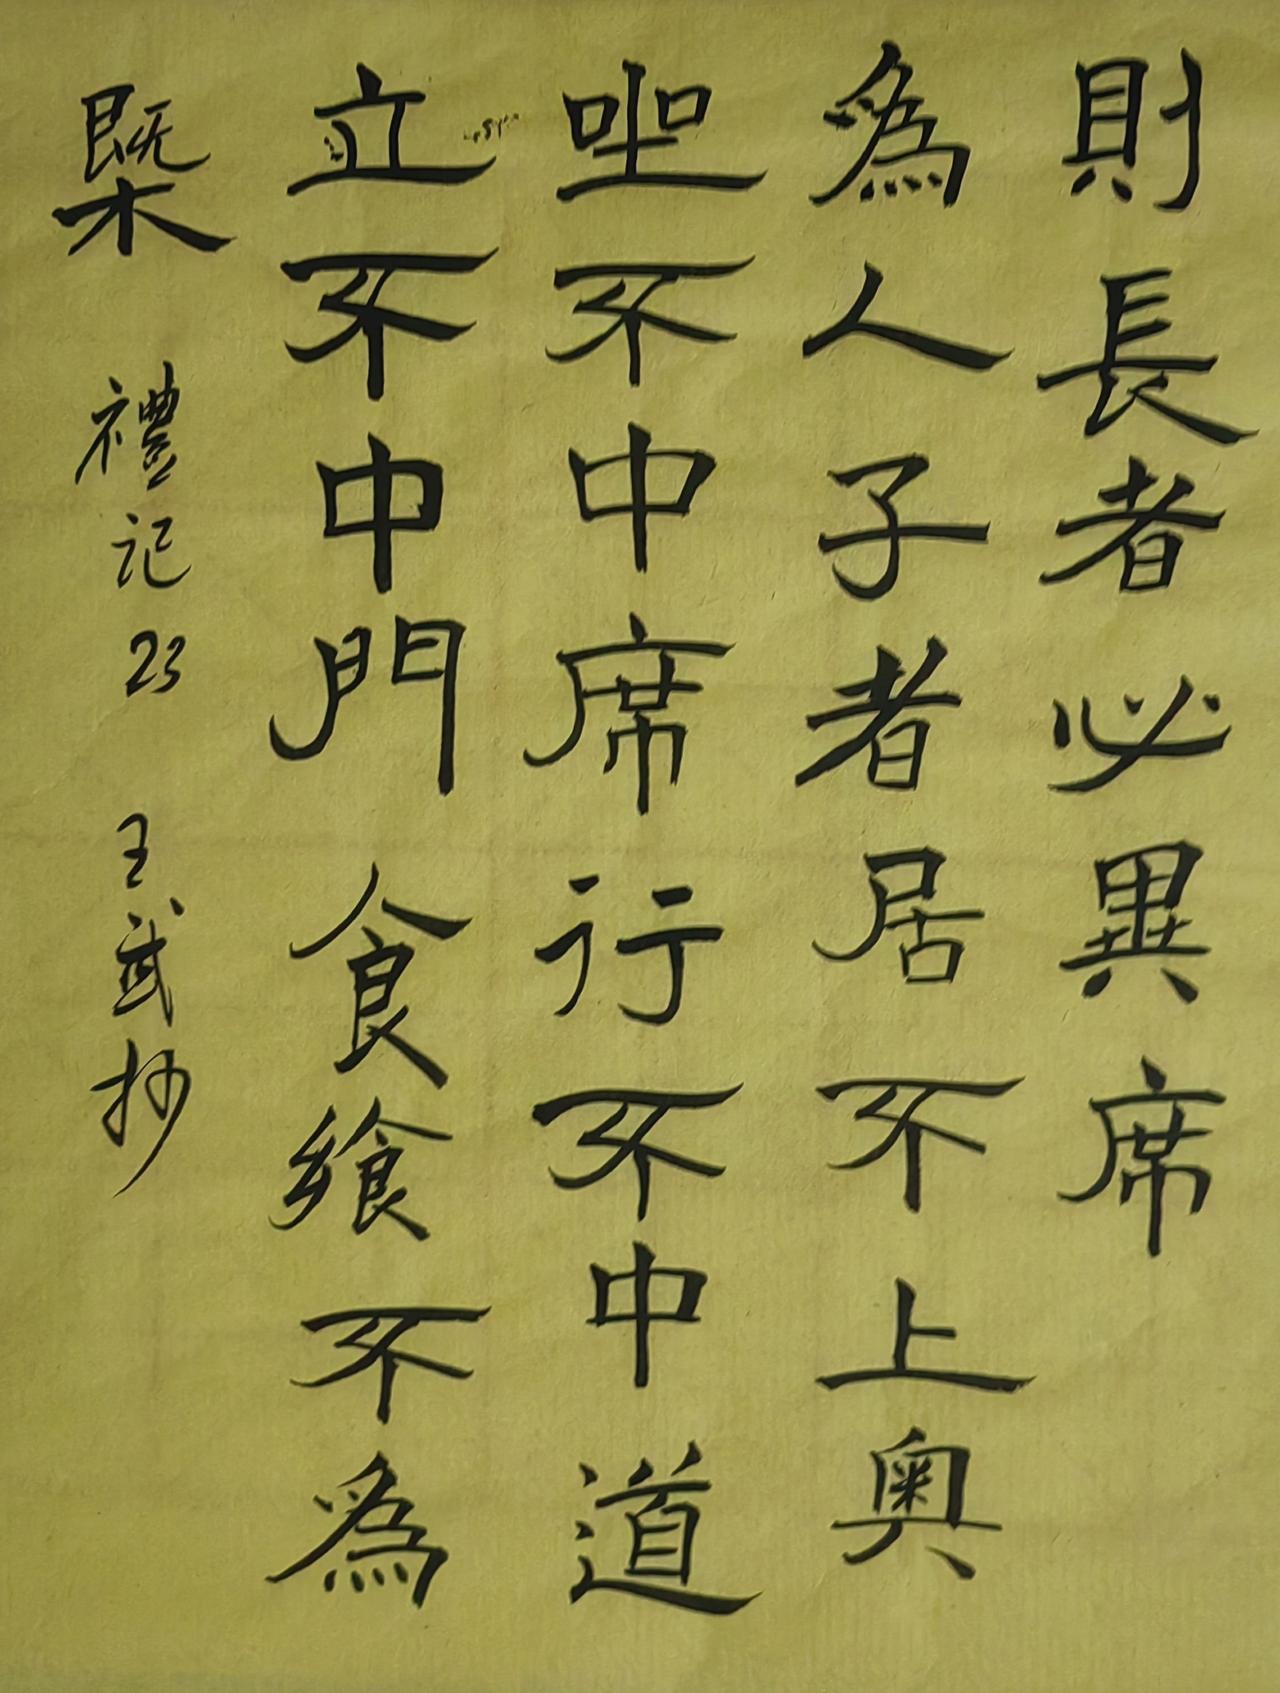 則長者必異席
為人子者居不上奧
坐不中席行不中道
立不中門食飨不為
槩 禮记 23 王武抄